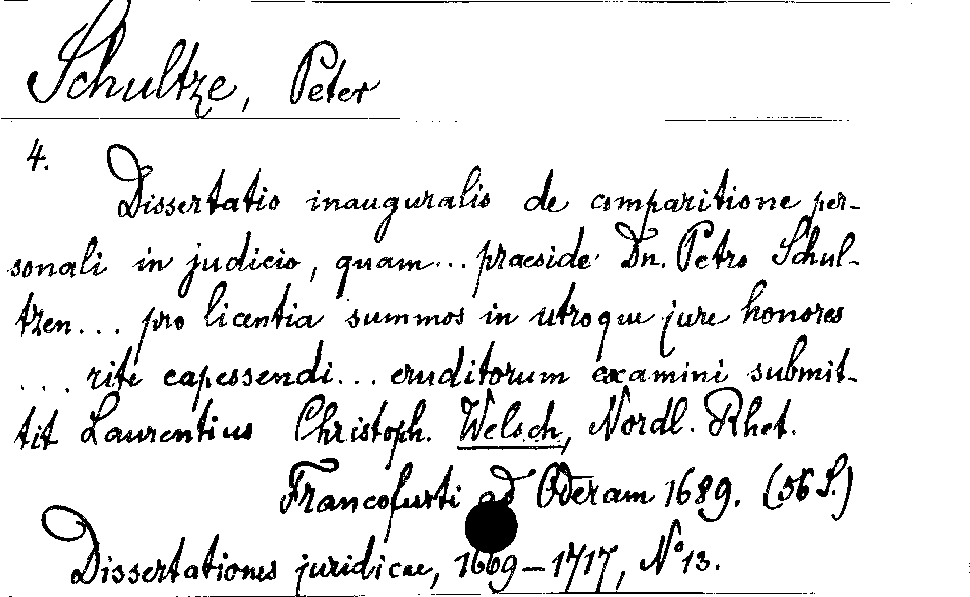 Schultze, Peter
4.
Dissertatio inauguralis de comparitione per-
sonali in judicio, quam... praeside Dn. Petro Schul-
tzen... pro licentia summos in utroque jure honores
... rite capessendi... eruditorum examini submit-
tit Laurentius Christoph. Welsch, Nordl. Rhet.
Francofurti ad Oderam 1689. (56 S.)
Dissertationes juridicae, 1669-1717, N° 13.